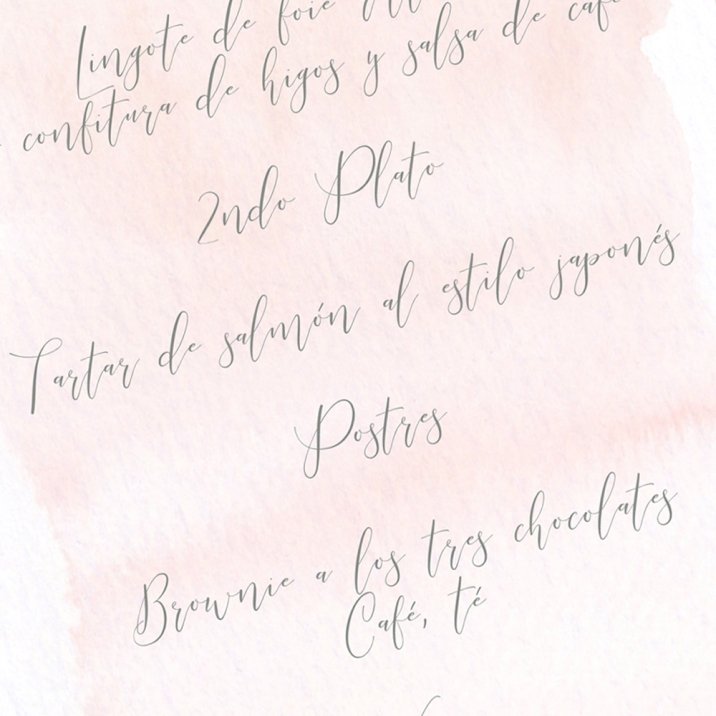 Lingote de foie
confitura de higos y salsa de café
2ndo Plato
Tartar de salmón al estilo japonés
Postres
Brownie a los tres chocolates
Café, té